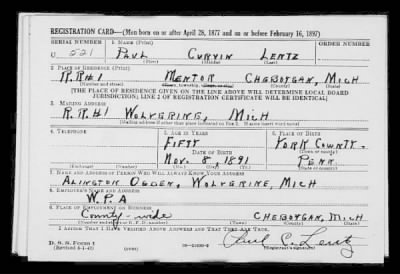 REGISTRATION CARD—(Men born on or after April 28, 1877 and on or before February 16, 1897)
SERIAL NUMBER 1. NAME (Print) ORDER NUMBER
U 521 PAUL CURVIN LENTZ
(First) (Middle) (Last)
2. PLACE OF RESIDENCE (Print)
R.R#1 MENTOR CHEBOYGAN, MICH
(Number and street) (Town, township, village, or city) (County) (State)
[THE PLACE OF RESIDENCE GIVEN ON THE LINE ABOVE WILL DETERMINE LOCAL BOARD
JURISDICTION; LINE 2 OF REGISTRATION CERTIFICATE WILL BE IDENTICAL]
3. MAILING ADDRESS
R.R.#1 WOLVERINE, MICH
[Mailing address if other than place indicated on line 2. If same insert word same]
4. TELEPHONE 5. AGE IN YEARS 6. PLACE OF BIRTH
FIFTY YORK COUNTY.
DATE OF BIRTH (Town or county)
NOV. 8, 1891 PENN.
(Exchange) (Number) (Mo.) (Day) (Yr.) (State or country)
7. NAME AND ADDRESS OF PERSON WHO WILL ALWAYS KNOW YOUR ADDRESS
ALINGTON OGDEN, WOLVERINE, MICH
8. EMPLOYER'S NAME AND ADDRESS
W.P.A
9. PLACE OF EMPLOYMENT OR BUSINESS
County-wide CHEBOYGAN, MICH.
(Number and street or R. F. D. number) (Town) (County) (State)
I AFFIRM THAT I HAVE VERIFIED ABOVE ANSWERS AND THAT THEY ARE TRUE.
D. S. S. Form 1
(Revised 4-1-42) (over) Paul C. Lentz
(Registrant's signature)